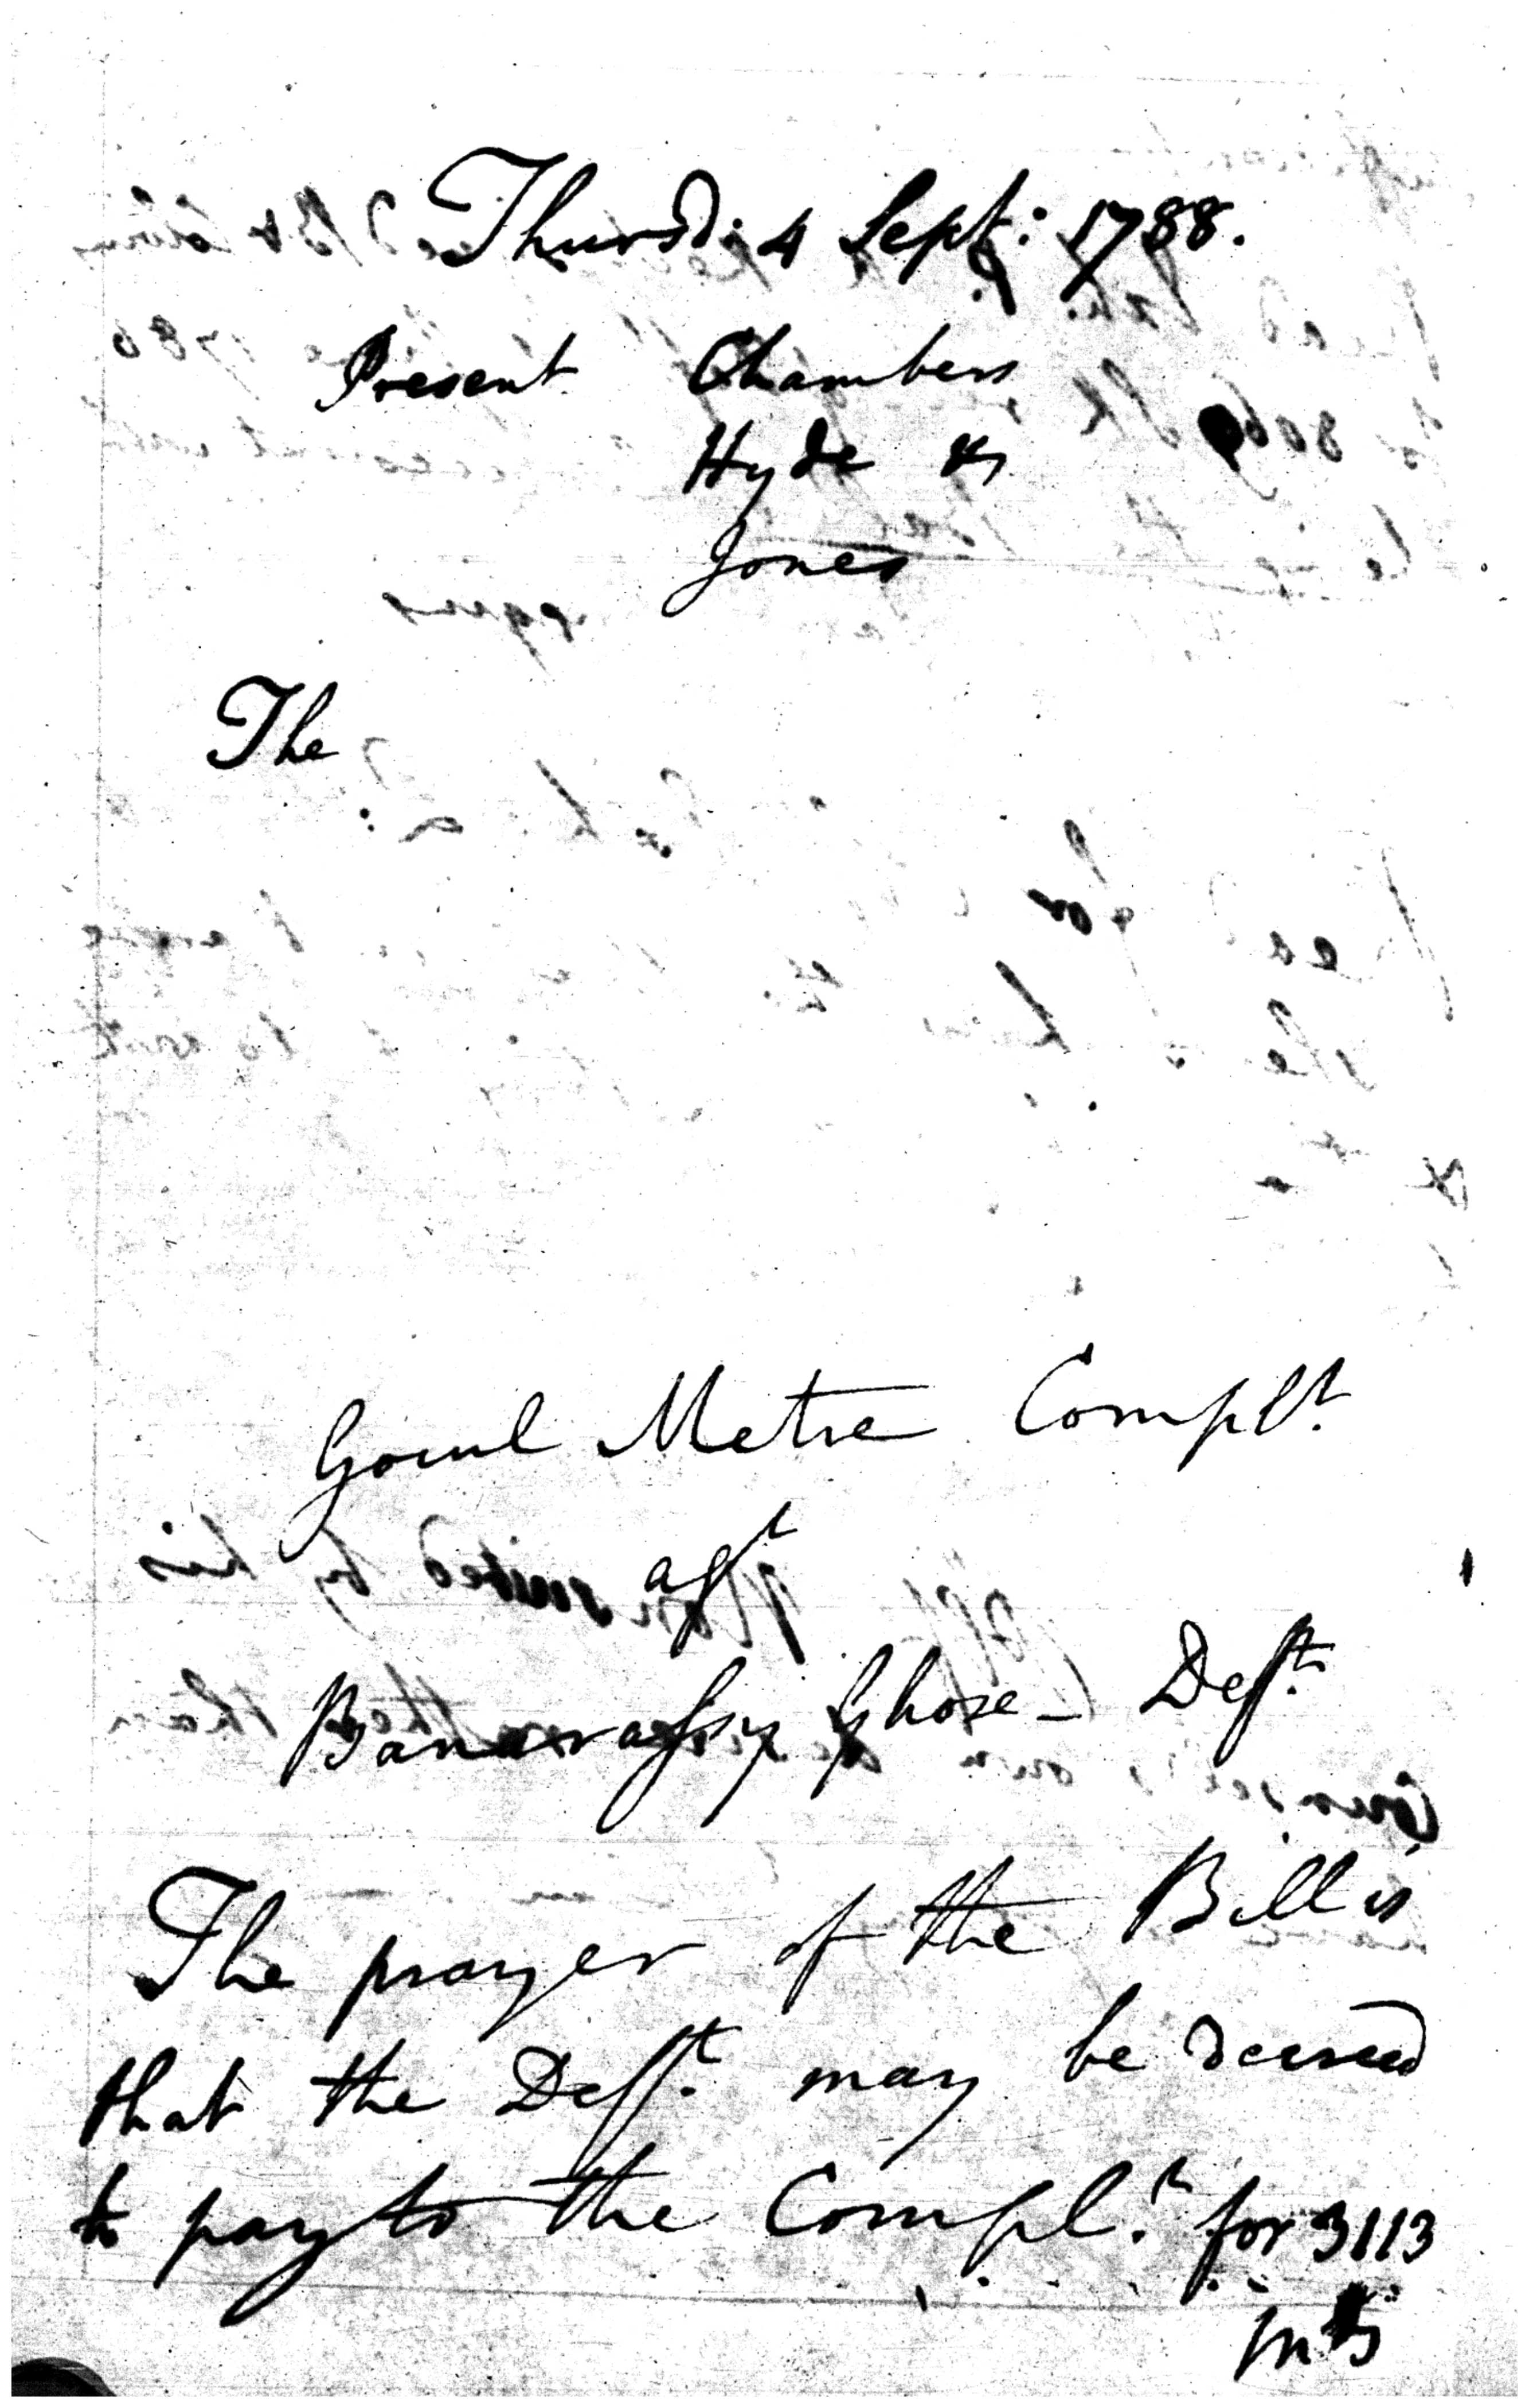 Thursd: 4 Sept: 1788.
Present Chambers
Hyde &
Jones
The
Gocul Metre Complt.
agt
Banarassy Ghose – Deft.
The prayer of the Bill is
that the Deft. may be decreed
to pay to the Complt. for 3113